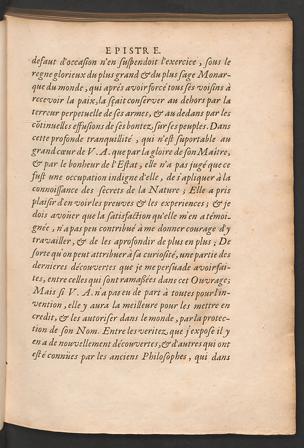 EPISTRE.
defaut d'occasion n'en suspendoit l'exercice, sous le
regne glorieux du plus grand & du plus sage Monar-
que du monde, qui aprés avoir forcé tous ses voisins à
recevoir la paix, la sçait conserver au dehors par la
terreur perpetuelle de ses armes, & au dedans par les
cõtinuelles effusions de ses bontez, sur ses peuples. Dans
cette profonde tranquillité, qui n'est suportable au
grand cœur de V. A. que par la gloire de son Maître,
& par le bonheur de l'Estat, elle n'a pas jugé que ce
fust une occupation indigne d'elle, de s'apliquer à la
connoissance des secrets de la Nature; Elle a pris
plaisir d'en voir les preuves & les experiences; & je
dois avoüer que la satisfaction qu'elle m'en a témoi-
gnée, n'a pas peu contribué à me donner courage d'y
travailler, & de les aprofondir de plus en plus; De
sorte qu'on peut attribuer à sa curiosité, une partie des
dernieres découvertes que je me persuade avoir fai-
tes, entre celles qui sont ramassées dans cet Ouvrage;
Mais si V. A. n'a pas eu de part à toutes pour l'in-
vention, elle y aura la meilleure pour les mettre en
credit, & les autoriser dans le monde, par la protec-
tion de son Nom. Entre les veritez que j'expose il y
en a de nouvellement découvertes, & d'autres qui ont
esté connües par les anciens Philosophes, qui dans